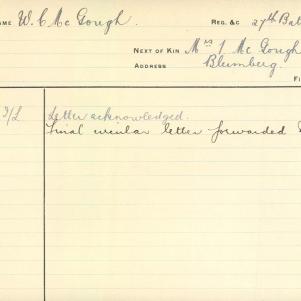 NAME W. C. Mc Gough. REG. &C 27th Bat
NEXT OF KIN Mrs J Mc Gough
ADDRESS Blumberg.
T/L Letter acknowledged.
Final circular letter forwarded